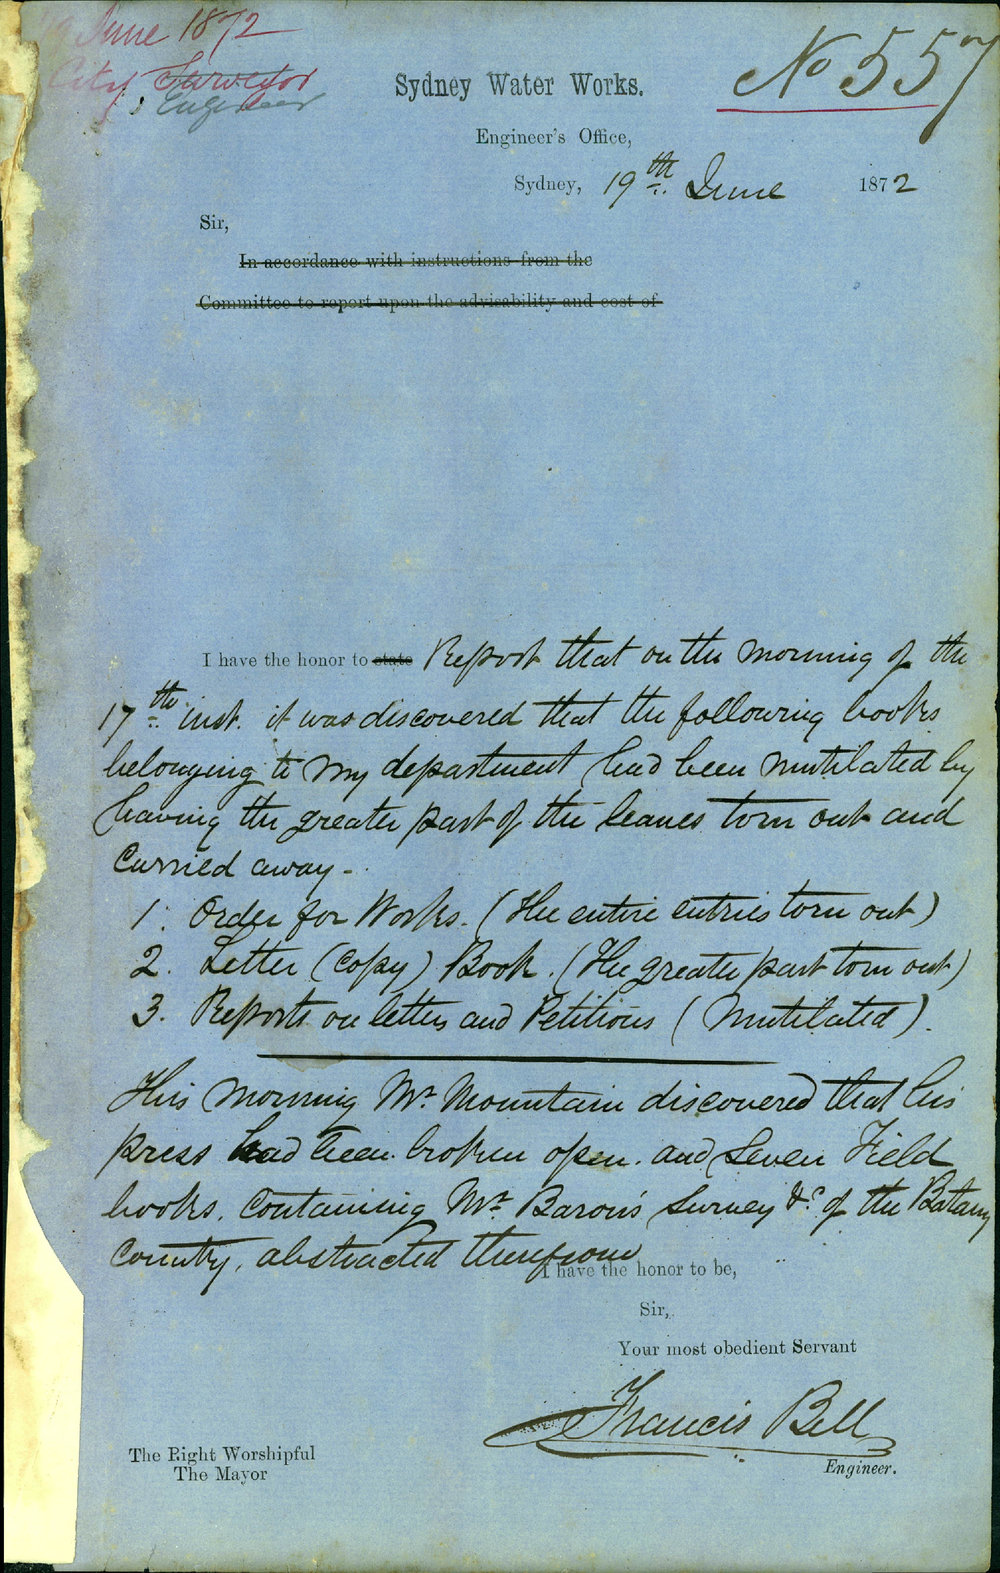 19 June 1872
City Surveyor
Engineer
No 557
Sydney Water Works.
Engineer's Office,
Sydney, 19th June 1872
Sir,
In accordance with instructions from the
Committee to report upon the advisability and cost of
I have the honor to state Report that on the morning of the
17th inst. it was discovered that the following books
belonging to my department had been mutilated by
having the greater part of the leaves torn out and
carried away -
1. Order for Works. (The entire entries torn out)
2. Letter (Copy) Book. (The greater part torn out)
3. Reports on letters and Petitions (Mutilated).
This morning Mr. Mountain discovered that his
press had been broken open. and seven Field
books, containing Mr. Baron's Survey &c. of the Botany
County, abstracted therefrom
I have the honor to be,
Sir,
Your most obedient Servant
Francis Bell
Engineer.
The Right Worshipful
The Mayor